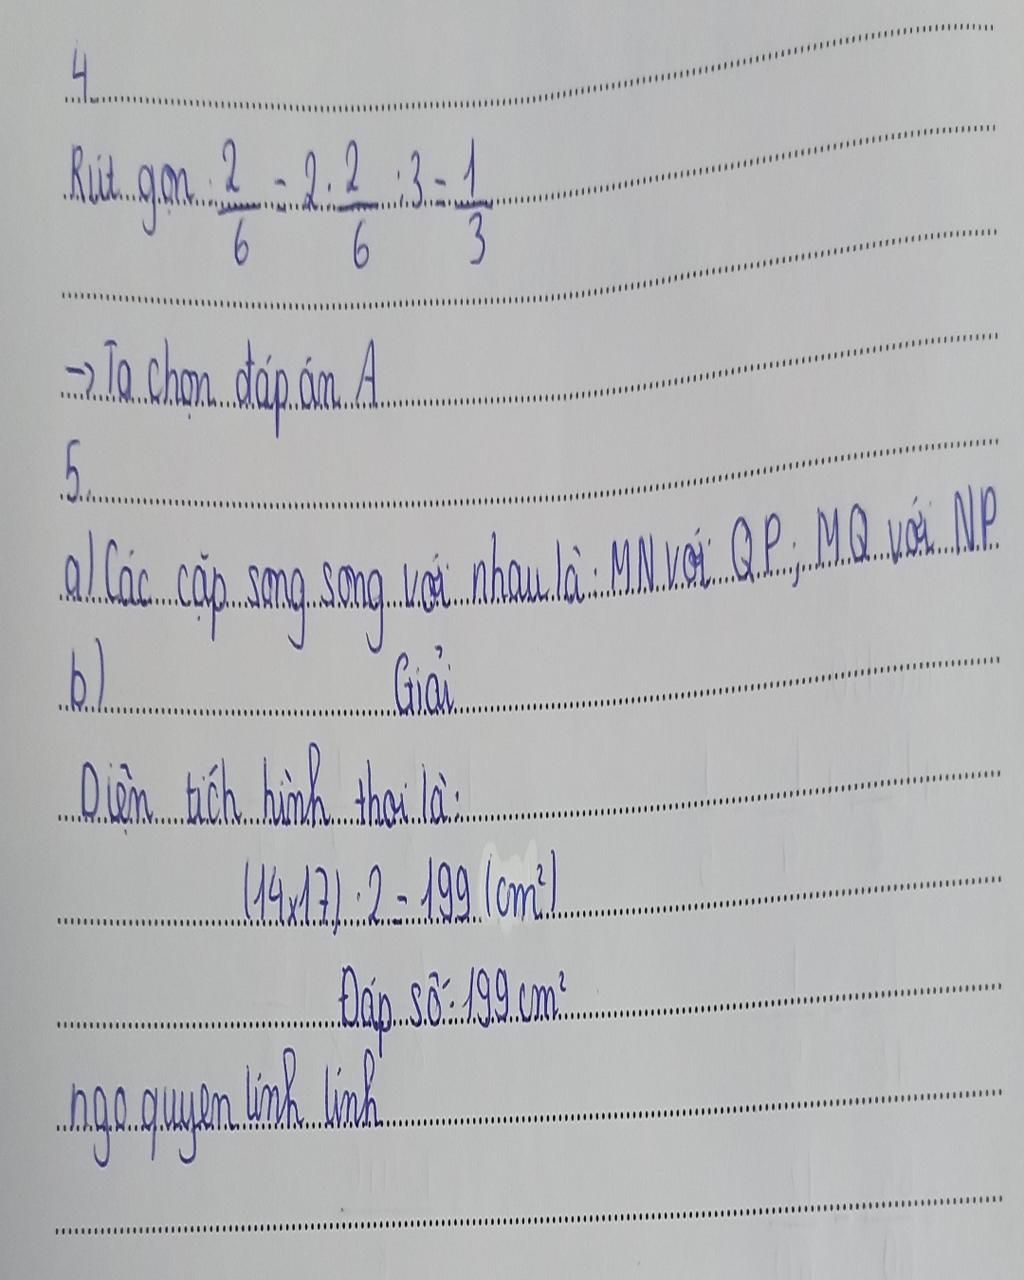 4
Rút gọn: 2/6 = 2 : 2/6 : 3 = 1/3
→ Ta chọn đáp án A
5.
a) Các cặp song song với nhau là: MN với QP; MQ với NP
b) Giải
Diện tích hình thoi là:
(14x17) : 2 = 199 (cm²)
Đáp số: 199 cm²
ngo quyen linh linh